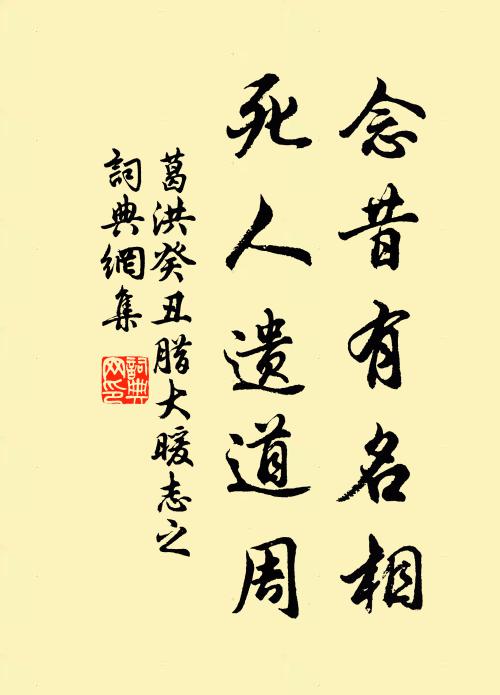 念昔有名相
死人遗道周
葛洪癸丑腊大暖志之
詞典網集
詞典网印